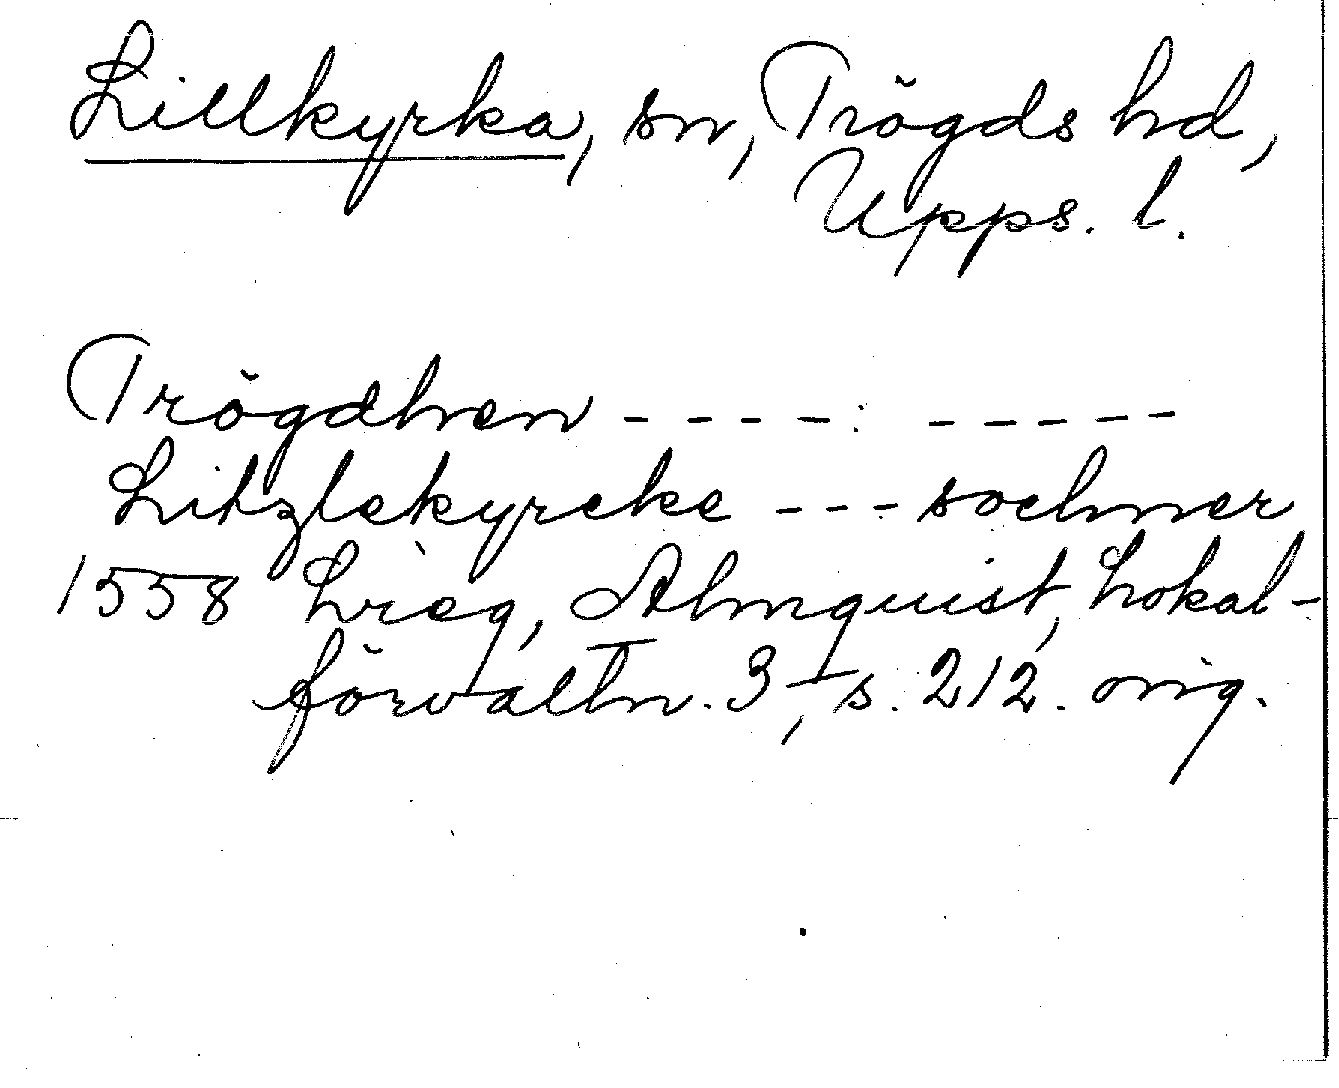 Lillkyrka, sn, Trögds hd,
Upps. l.
Trögdhen ----: -----
Litzlekyrcke --- sochner
1558 Lreg, Almquist, Lokal-
förvaltn. 3, s. 212. orig.